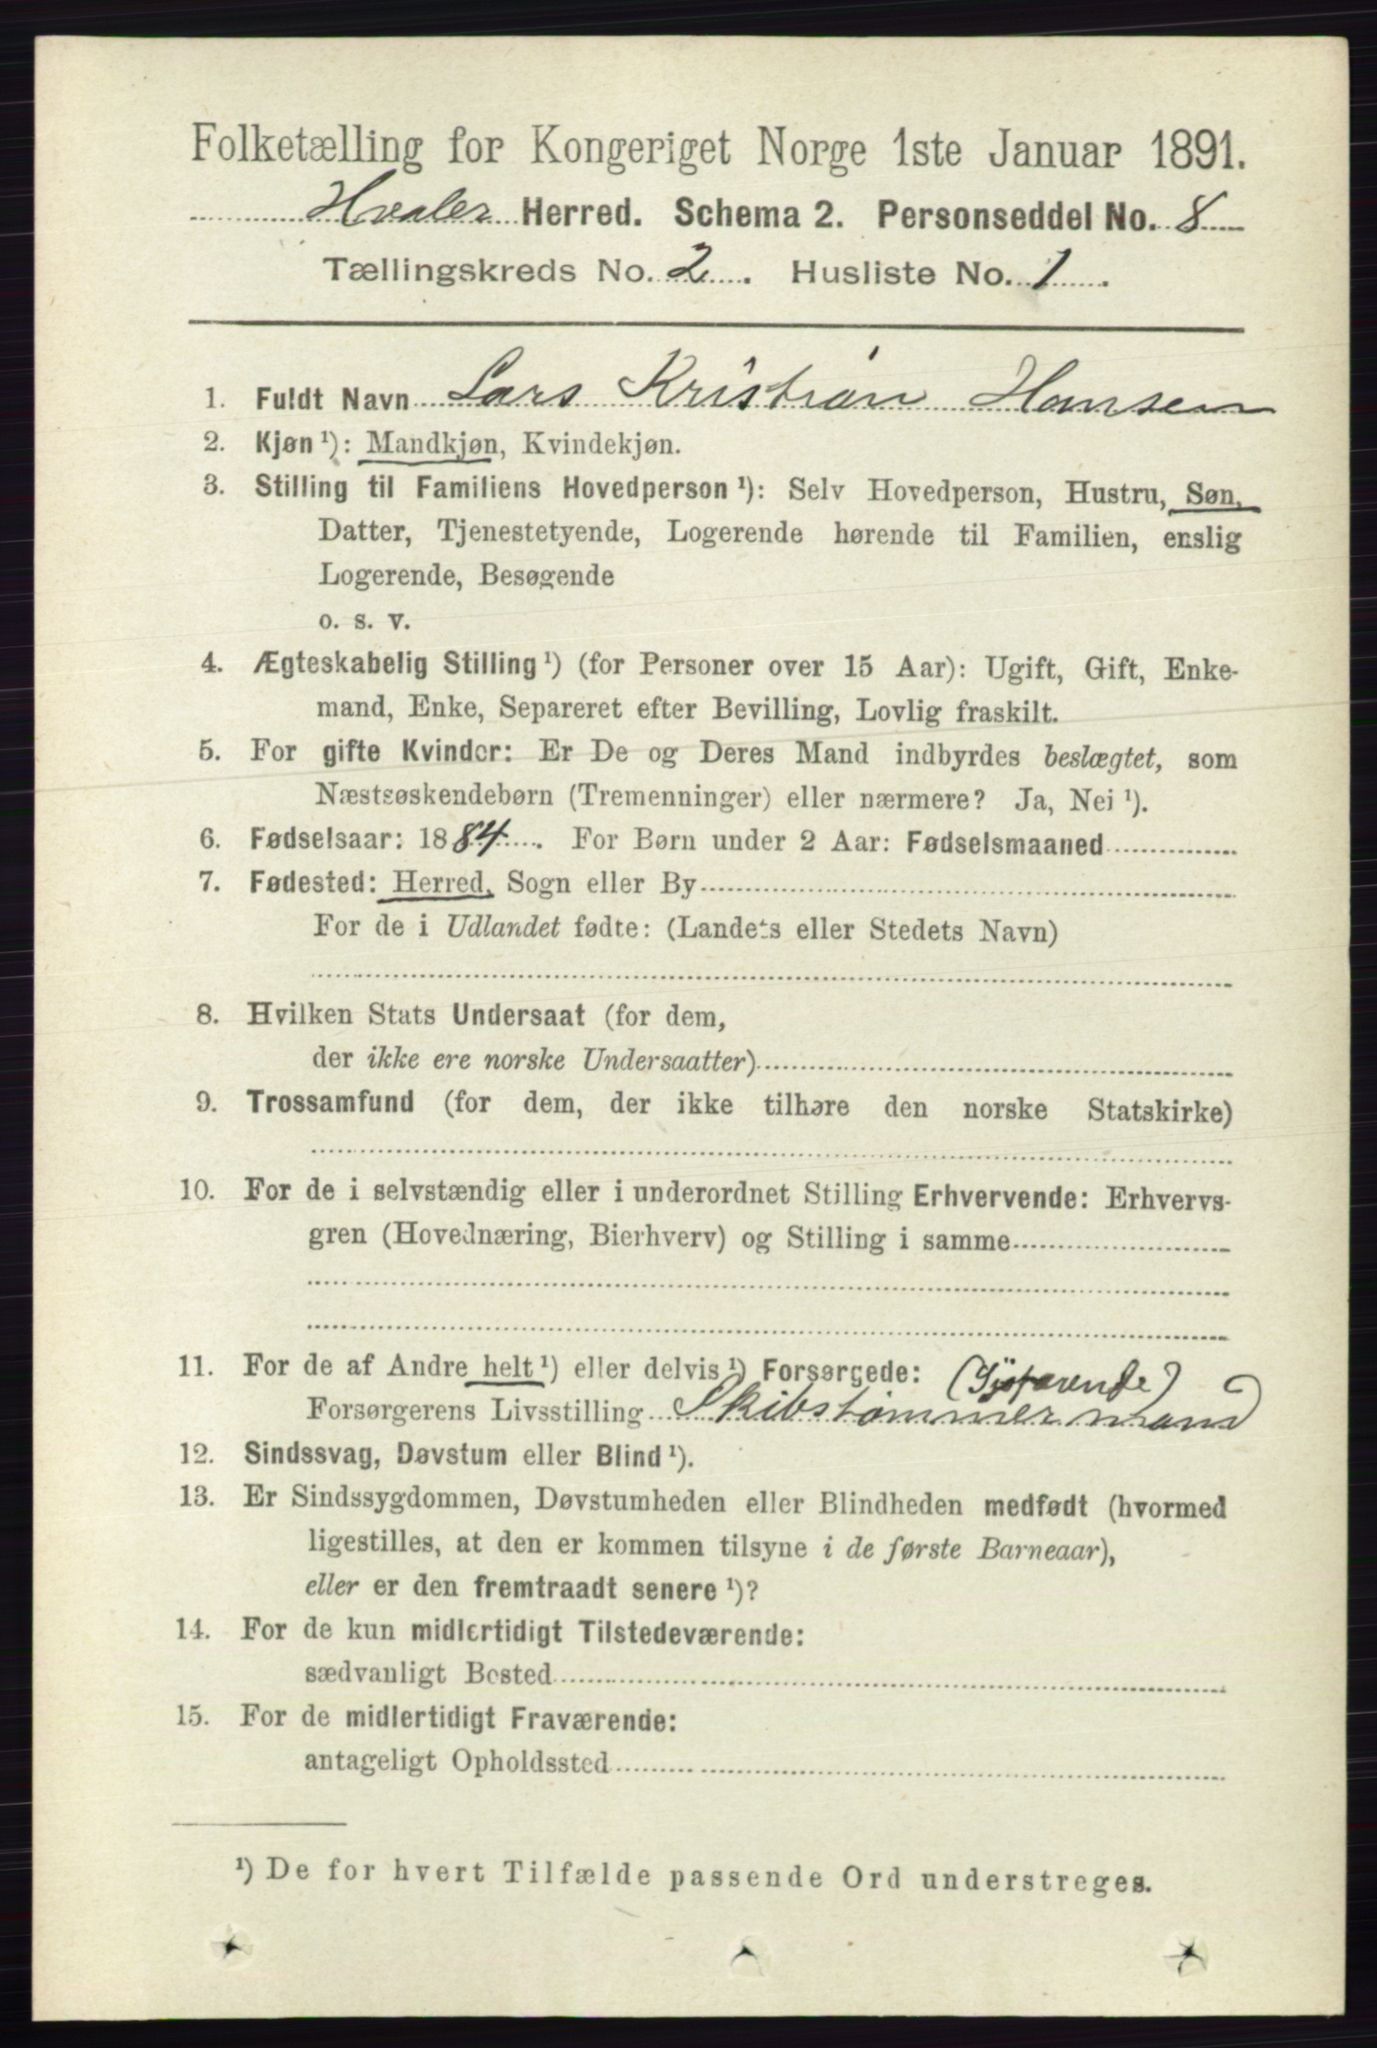 Folketælling for Kongeriget Norge 1ste Januar 1891.
Hvaler Herred. Schema 2. Personseddel No. 8
Tællingskreds No. 2. Husliste No. 1.
1. Fuldt Navn Lars Kristian Hansen
2. Kjøn¹): Mandkjøn, Kvindekjøn.
3. Stilling til Familiens Hovedperson¹): Selv Hovedperson, Hustru, Søn,
Datter, Tjenestetyende, Logerende hørende til Familien, enslig
Logerende, Besøgende
o. s. v.
4. Ægteskabelig Stilling¹) (for Personer over 15 Aar): Ugift, Gift, Enke-
mand, Enke, Separeret efter Bevilling, Lovlig fraskilt.
5. For gifte Kvinder: Er De og Deres Mand indbyrdes beslægtet, som
Næstsøskendebørn (Tremenninger) eller nærmere? Ja, Nei¹).
6. Fødselsaar: 1884. For Børn under 2 Aar: Fødselsmaaned
7. Fødested: Herred, Sogn eller By
For de i Udlandet fødte: (Landets eller Stedets Navn)
8. Hvilken Stats Undersaat (for dem,
der ikke ere norske Undersaatter)
9. Trossamfund (for dem, der ikke tilhøre den norske Statskirke)
10. For de i selvstændig eller i underordnet Stilling Erhvervende: Erhvervs-
gren (Hovednæring, Bierhverv) og Stilling i samme
11. For de af Andre helt¹) eller delvis¹) Forsørgede: (Sjøfarende)
Forsørgerens Livsstilling Skibstømmermand
12. Sindssvag, Døvstum eller Blind¹).
13. Er Sindssygdommen, Døvstumheden eller Blindheden medfødt (hvormed
ligestilles, at den er kommen tilsyne i de første Barneaar),
eller er den fremtraadt senere¹)?
14. For de kun midlertidigt Tilstedeværende:
sædvanligt Bosted
15. For de midlertidigt Fraværende:
antageligt Opholdssted
¹) De for hvert Tilfælde passende Ord understreges.